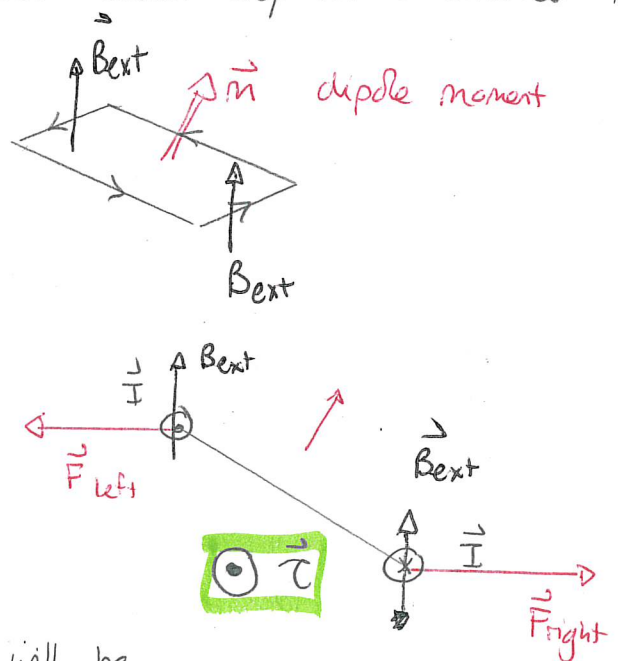 B⃗ext
m⃗ dipole moment
Bext
I⃗ Bext
B⃗ext
F⃗ left
τ⃗
I⃗
F⃗right
will be